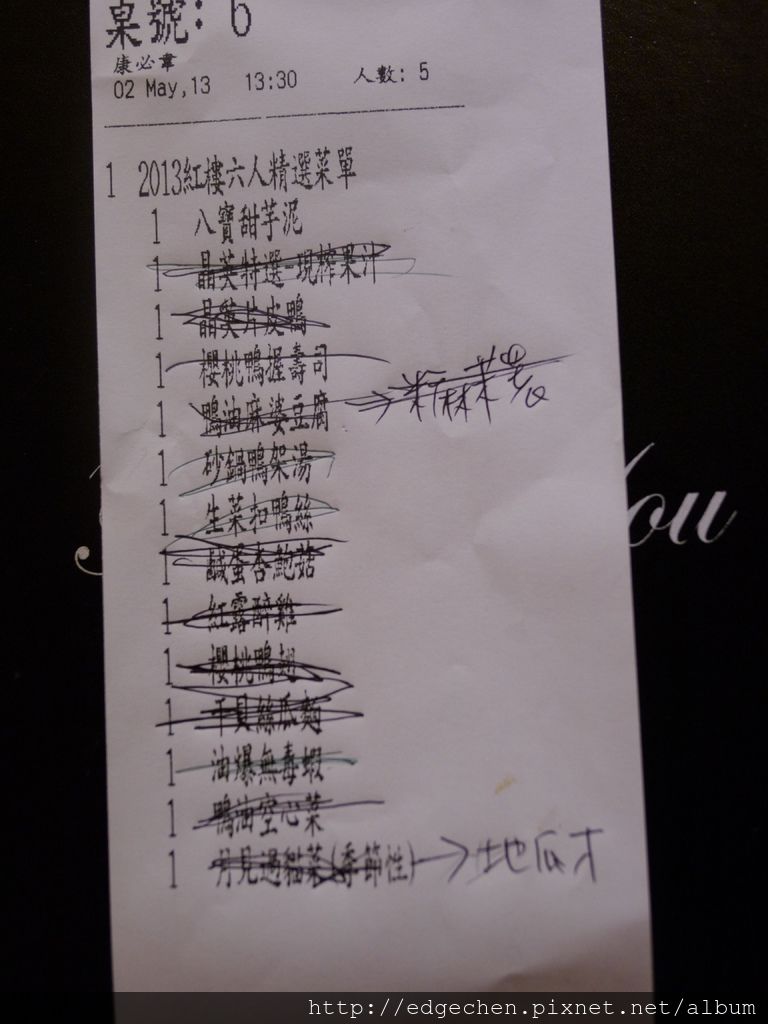 桌號: 6
康必韋
02 May,13 13:30 人數: 5
1 2013紅樓六人精選菜單
1 八寶甜芋泥
1 晶英特選-現榨果汁
1 晶英片皮鴨
1 櫻桃鴨握壽司
1 鴨油麻婆豆腐 →
1 砂鍋鴨架湯
1 生菜扣鴨絲
1 鹹蛋杏鮑菇
1 紅露醉雞
1 櫻桃鴨翅
1 干貝絲瓜麵
1 油爆無毒蝦
1 鴨油空心菜
1 月見過貓菜(季節性) → 地瓜才
ou
http://edgechen.pixnet.net/album